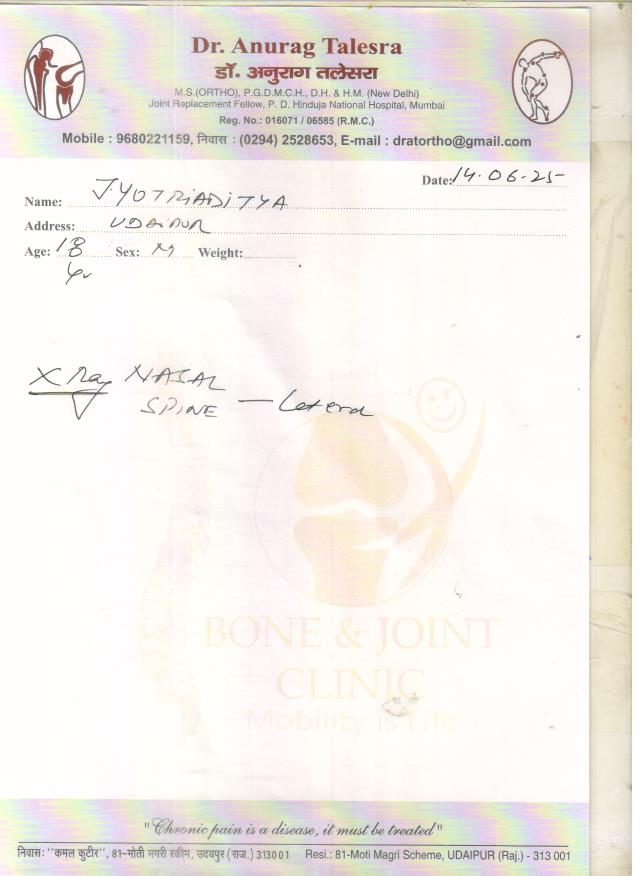 Dr. Anurag Talesra
डॉ. अनुराग तलेसरा
M.S.(ORTHO), P.G.D.M.C.H., D.H. & H.M. (New Delhi)
Joint Replacement Fellow, P. D. Hinduja National Hospital, Mumbai
Reg. No.: 016071 / 06585 (R.M.C.)
Mobile : 9680221159, निवास : (0294) 2528653, E-mail : dratortho@gmail.com
Date: 14.06.25
Name: JYOTRIADITYA
Address: UDAIPUR
Age: 18 Sex: M Weight:
yr
X Ray NASAL
SPINE — Lateral
BONE & JOINT
CLINIC
Mobility is Life
"Chronic pain is a disease, it must be treated"
निवास: "कमल कुटीर", 81-मोती मगरी स्कीम, उदयपुर (राज.) 313001 Resi.: 81-Moti Magri Scheme, UDAIPUR (Raj.) - 313 001